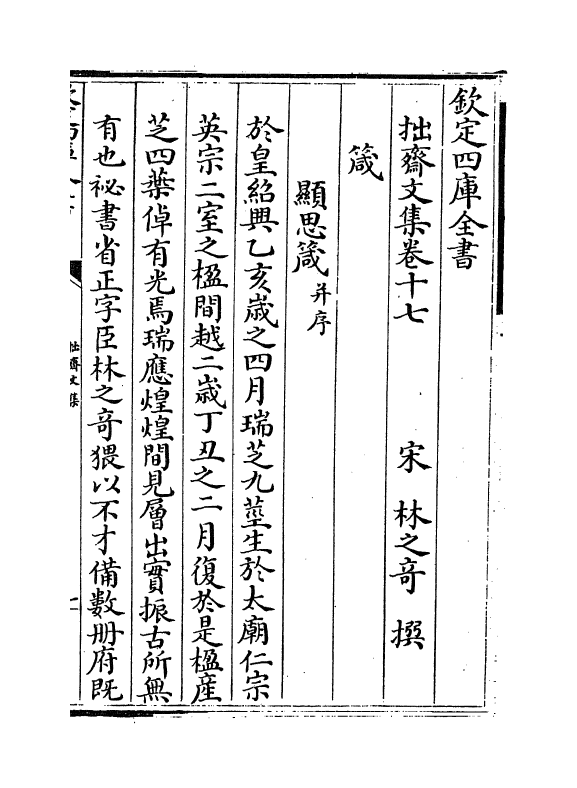 欽定四庫全書
拙齋文集卷十七
宋 林之奇 撰
箴
顯思箴并序
於皇紹興乙亥歳之四月瑞芝九莖生於太廟仁宗
英宗二室之楹間越二歳丁丑之二月復於是楹產
芝四葉倬有光焉瑞應煌煌間見層出實振古所無
有也祕書省正字臣林之竒猥以不才備數册府既
拙齋文集